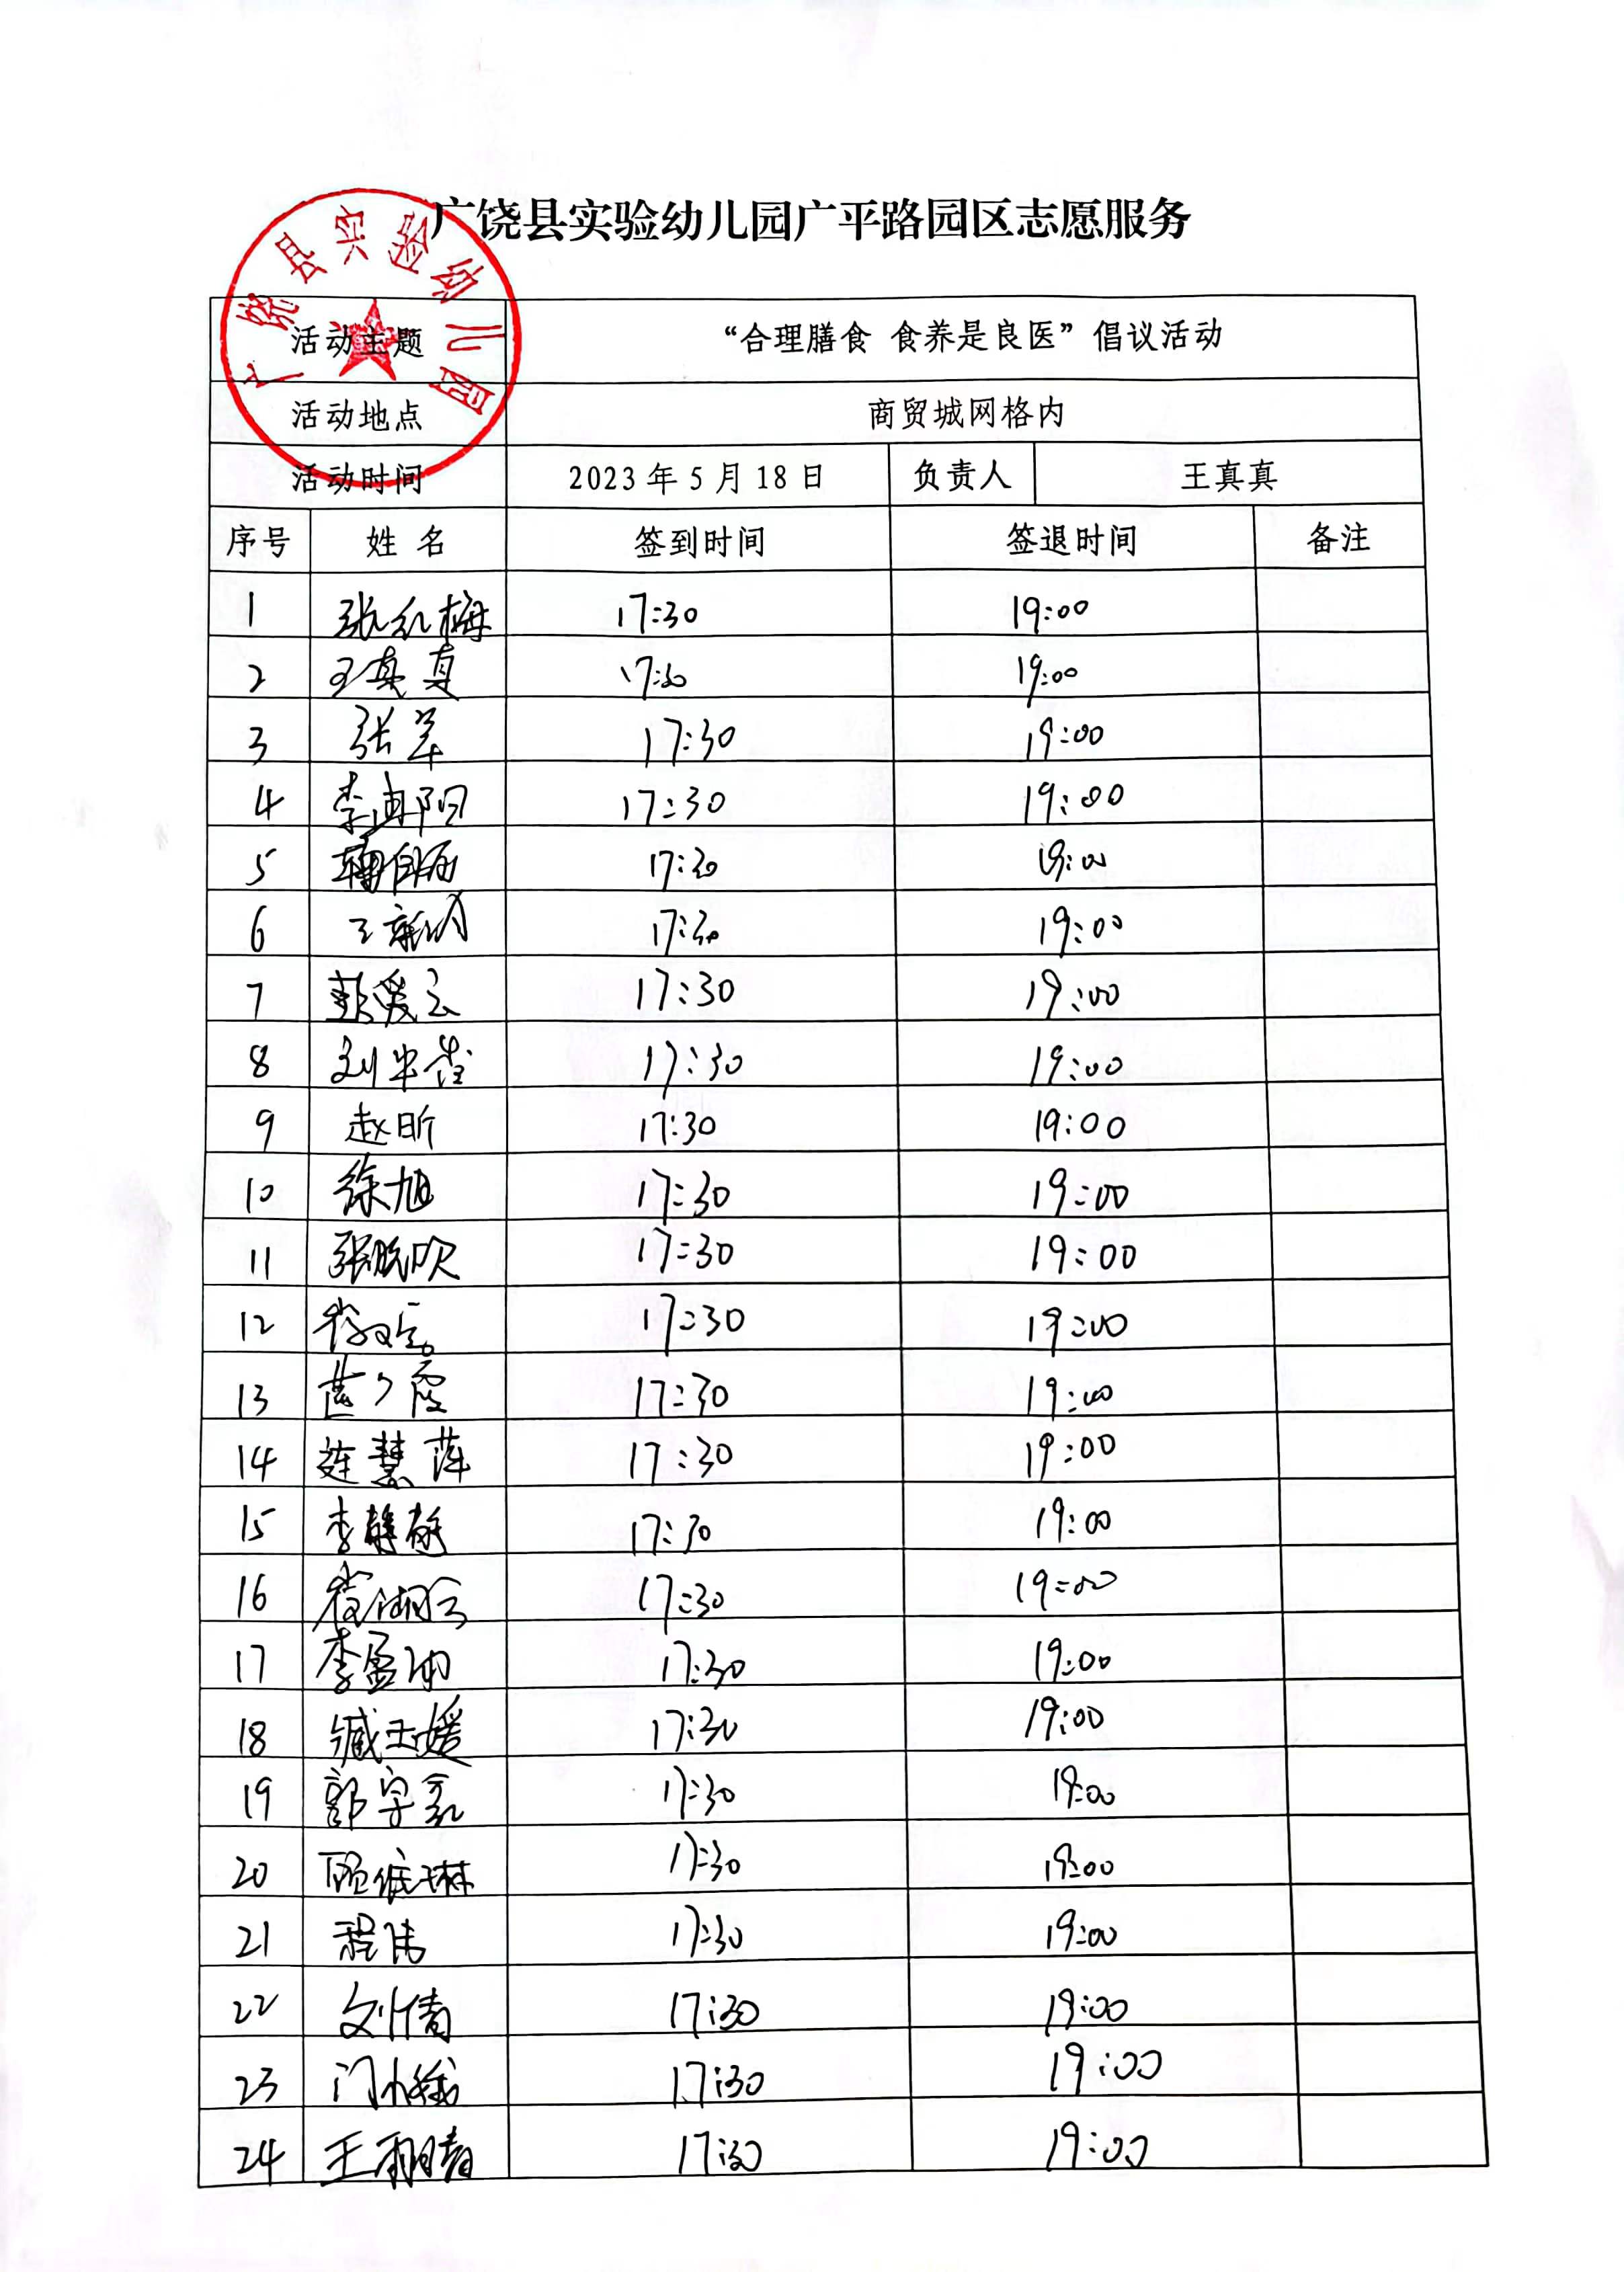 广饶县实验幼儿园广平路园区志愿服务
广饶县实验幼儿园
活动主题 “合理膳食 食养是良医”倡议活动
活动地点 商贸城网格内
活动时间 2023年5月18日 负责人 王真真
序号 姓名 签到时间 签退时间 备注
1 张红梅 17:30 19:00
2 王真真 17:30 19:00
3 张苹 17:30 19:00
4 李冉阳 17:30 19:00
5 17:30 19:00
6 王新 17:30 19:00
7 彭爱云 17:30 19:00
8 刘 17:30 19:00
9 赵昕 17:30 19:00
10 徐旭 17:30 19:00
11 张 17:30 19:00
12 17:30 19:00
13 霞 17:30 19:00
14 连慧萍 17:30 19:00
15 李静静 17:30 19:00
16 崔 17:30 19:00
17 李盈 17:30 19:00
18 臧玉媛 17:30 19:00
19 郭 17:30 19:00
20 顾 琳 17:30 19:00
21 程伟 17:30 19:00
22 刘倩 17:30 19:00
23 门小 17:30 19:00
24 王雨晴 17:30 19:00